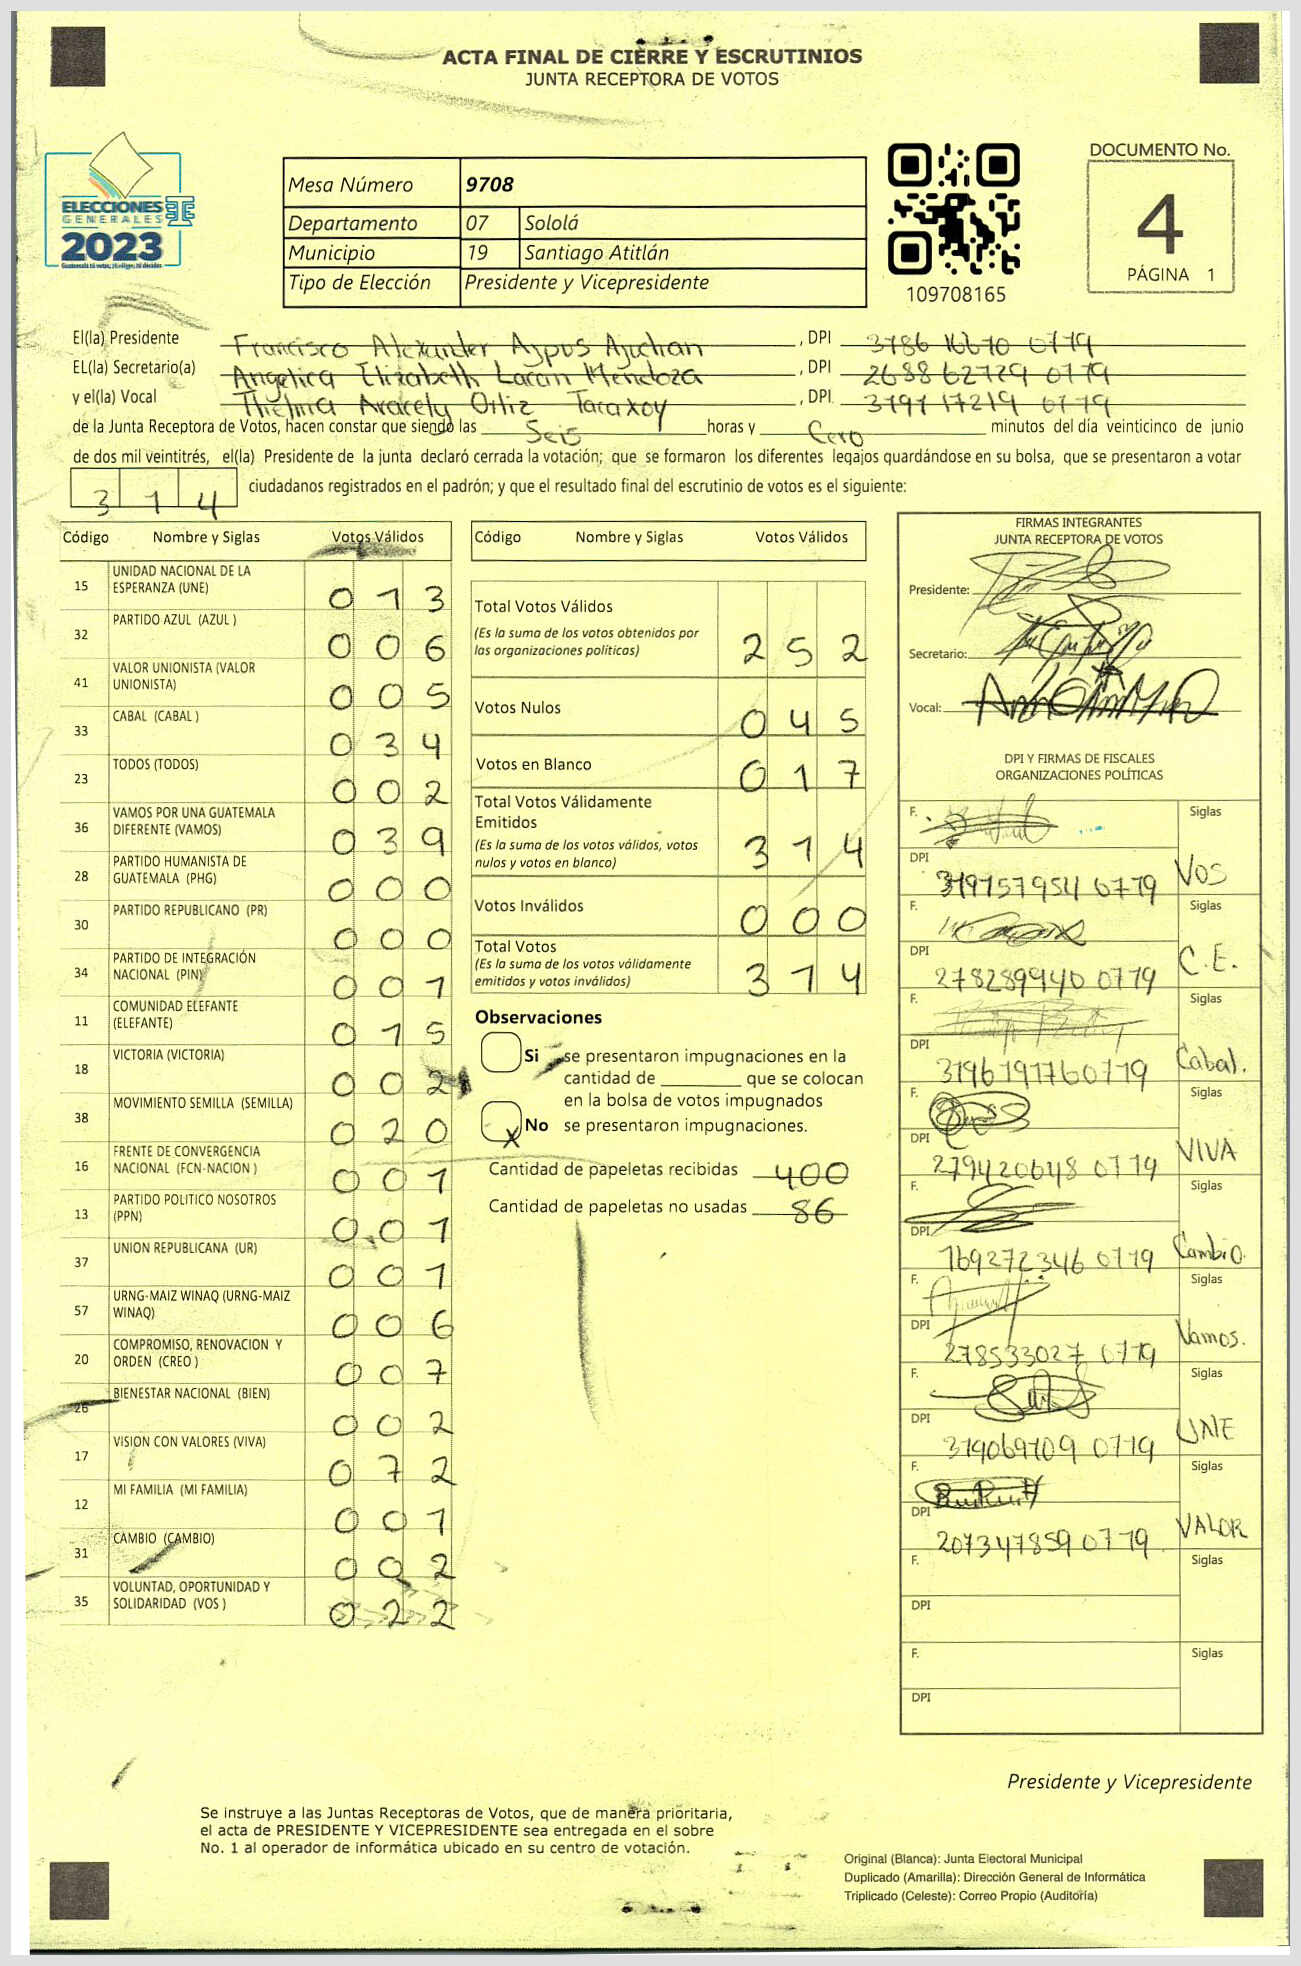 ACTA FINAL DE CIERRE Y ESCRUTINIOS
JUNTA RECEPTORA DE VOTOS
ELECCIONES
GENERALES
2023
Mesa Número 9708
Departamento 07 Sololá
Municipio 19 Santiago Atitlán
Tipo de Elección Presidente y Vicepresidente
109708165
DOCUMENTO No.
4
PÁGINA 1
El(la) Presidente Francisco Alexander Ajpus Ajuchan, DPI 3786 16670 0779
EL(la) Secretario(a) Angelica Elizabeth Lacan Mendoza, DPI 2688 62729 0779
y el(la) Vocal Thelma Aracely Ortiz Tacaxoy, DPI. 3797 17219 0779
de la Junta Receptora de Votos, hacen constar que siendo las Seis horas y Cero minutos del día veinticinco de junio
de dos mil veintitrés, el(la) Presidente de la junta declaró cerrada la votación; que se formaron los diferentes legajos guardándose en su bolsa, que se presentaron a votar
314 ciudadanos registrados en el padrón; y que el resultado final del escrutinio de votos es el siguiente:
Código Nombre y Siglas Votos Válidos
15 UNIDAD NACIONAL DE LA ESPERANZA (UNE) 013
32 PARTIDO AZUL (AZUL ) 006
41 VALOR UNIONISTA (VALOR UNIONISTA) 005
33 CABAL (CABAL ) 034
23 TODOS (TODOS) 002
36 VAMOS POR UNA GUATEMALA DIFERENTE (VAMOS) 039
28 PARTIDO HUMANISTA DE GUATEMALA (PHG) 000
30 PARTIDO REPUBLICANO (PR) 000
34 PARTIDO DE INTEGRACIÓN NACIONAL (PIN) 001
11 COMUNIDAD ELEFANTE (ELEFANTE) 015
18 VICTORIA (VICTORIA) 002
38 MOVIMIENTO SEMILLA (SEMILLA) 020
16 FRENTE DE CONVERGENCIA NACIONAL (FCN-NACION ) 001
13 PARTIDO POLITICO NOSOTROS (PPN) 001
37 UNION REPUBLICANA (UR) 001
57 URNG-MAIZ WINAQ (URNG-MAIZ WINAQ) 006
20 COMPROMISO, RENOVACION Y ORDEN (CREO ) 007
26 BIENESTAR NACIONAL (BIEN) 002
17 VISION CON VALORES (VIVA) 072
12 MI FAMILIA (MI FAMILIA) 001
31 CAMBIO (CAMBIO) 002
35 VOLUNTAD, OPORTUNIDAD Y SOLIDARIDAD (VOS ) 022
Código Nombre y Siglas Votos Válidos
Total Votos Válidos
(Es la suma de los votos obtenidos por
las organizaciones políticas) 252
Votos Nulos 045
Votos en Blanco 017
Total Votos Válidamente
Emitidos
(Es la suma de los votos válidos, votos
nulos y votos en blanco) 314
Votos Inválidos 000
Total Votos
(Es la suma de los votos válidamente
emitidos y votos inválidos) 314
Observaciones
Si se presentaron impugnaciones en la
cantidad de ________ que se colocan
en la bolsa de votos impugnados
X No se presentaron impugnaciones.
Cantidad de papeletas recibidas 400
Cantidad de papeletas no usadas 86
FIRMAS INTEGRANTES
JUNTA RECEPTORA DE VOTOS
Presidente:
Secretario:
Vocal:
DPI Y FIRMAS DE FISCALES
ORGANIZACIONES POLÍTICAS
F. Siglas
DPI 319757954 0779 VOS
F. Siglas
DPI 278289940 0779 C.E.
F. Siglas
DPI 319679776 0779 Cabal.
F. Siglas
DPI 279420648 0779 VIVA
F. Siglas
DPI 169272346 0779 Cambio.
F. Siglas
DPI 278533027 0779 Vamos.
F. Siglas
DPI 319069109 0779 UNE
F. Siglas
DPI 207347859 0779 VALOR
F. Siglas
DPI
F. Siglas
DPI
Presidente y Vicepresidente
Se instruye a las Juntas Receptoras de Votos, que de manera prioritaria,
el acta de PRESIDENTE Y VICEPRESIDENTE sea entregada en el sobre
No. 1 al operador de informática ubicado en su centro de votación.
Original (Blanca): Junta Electoral Municipal
Duplicado (Amarilla): Dirección General de Informática
Triplicado (Celeste): Correo Propio (Auditoría)